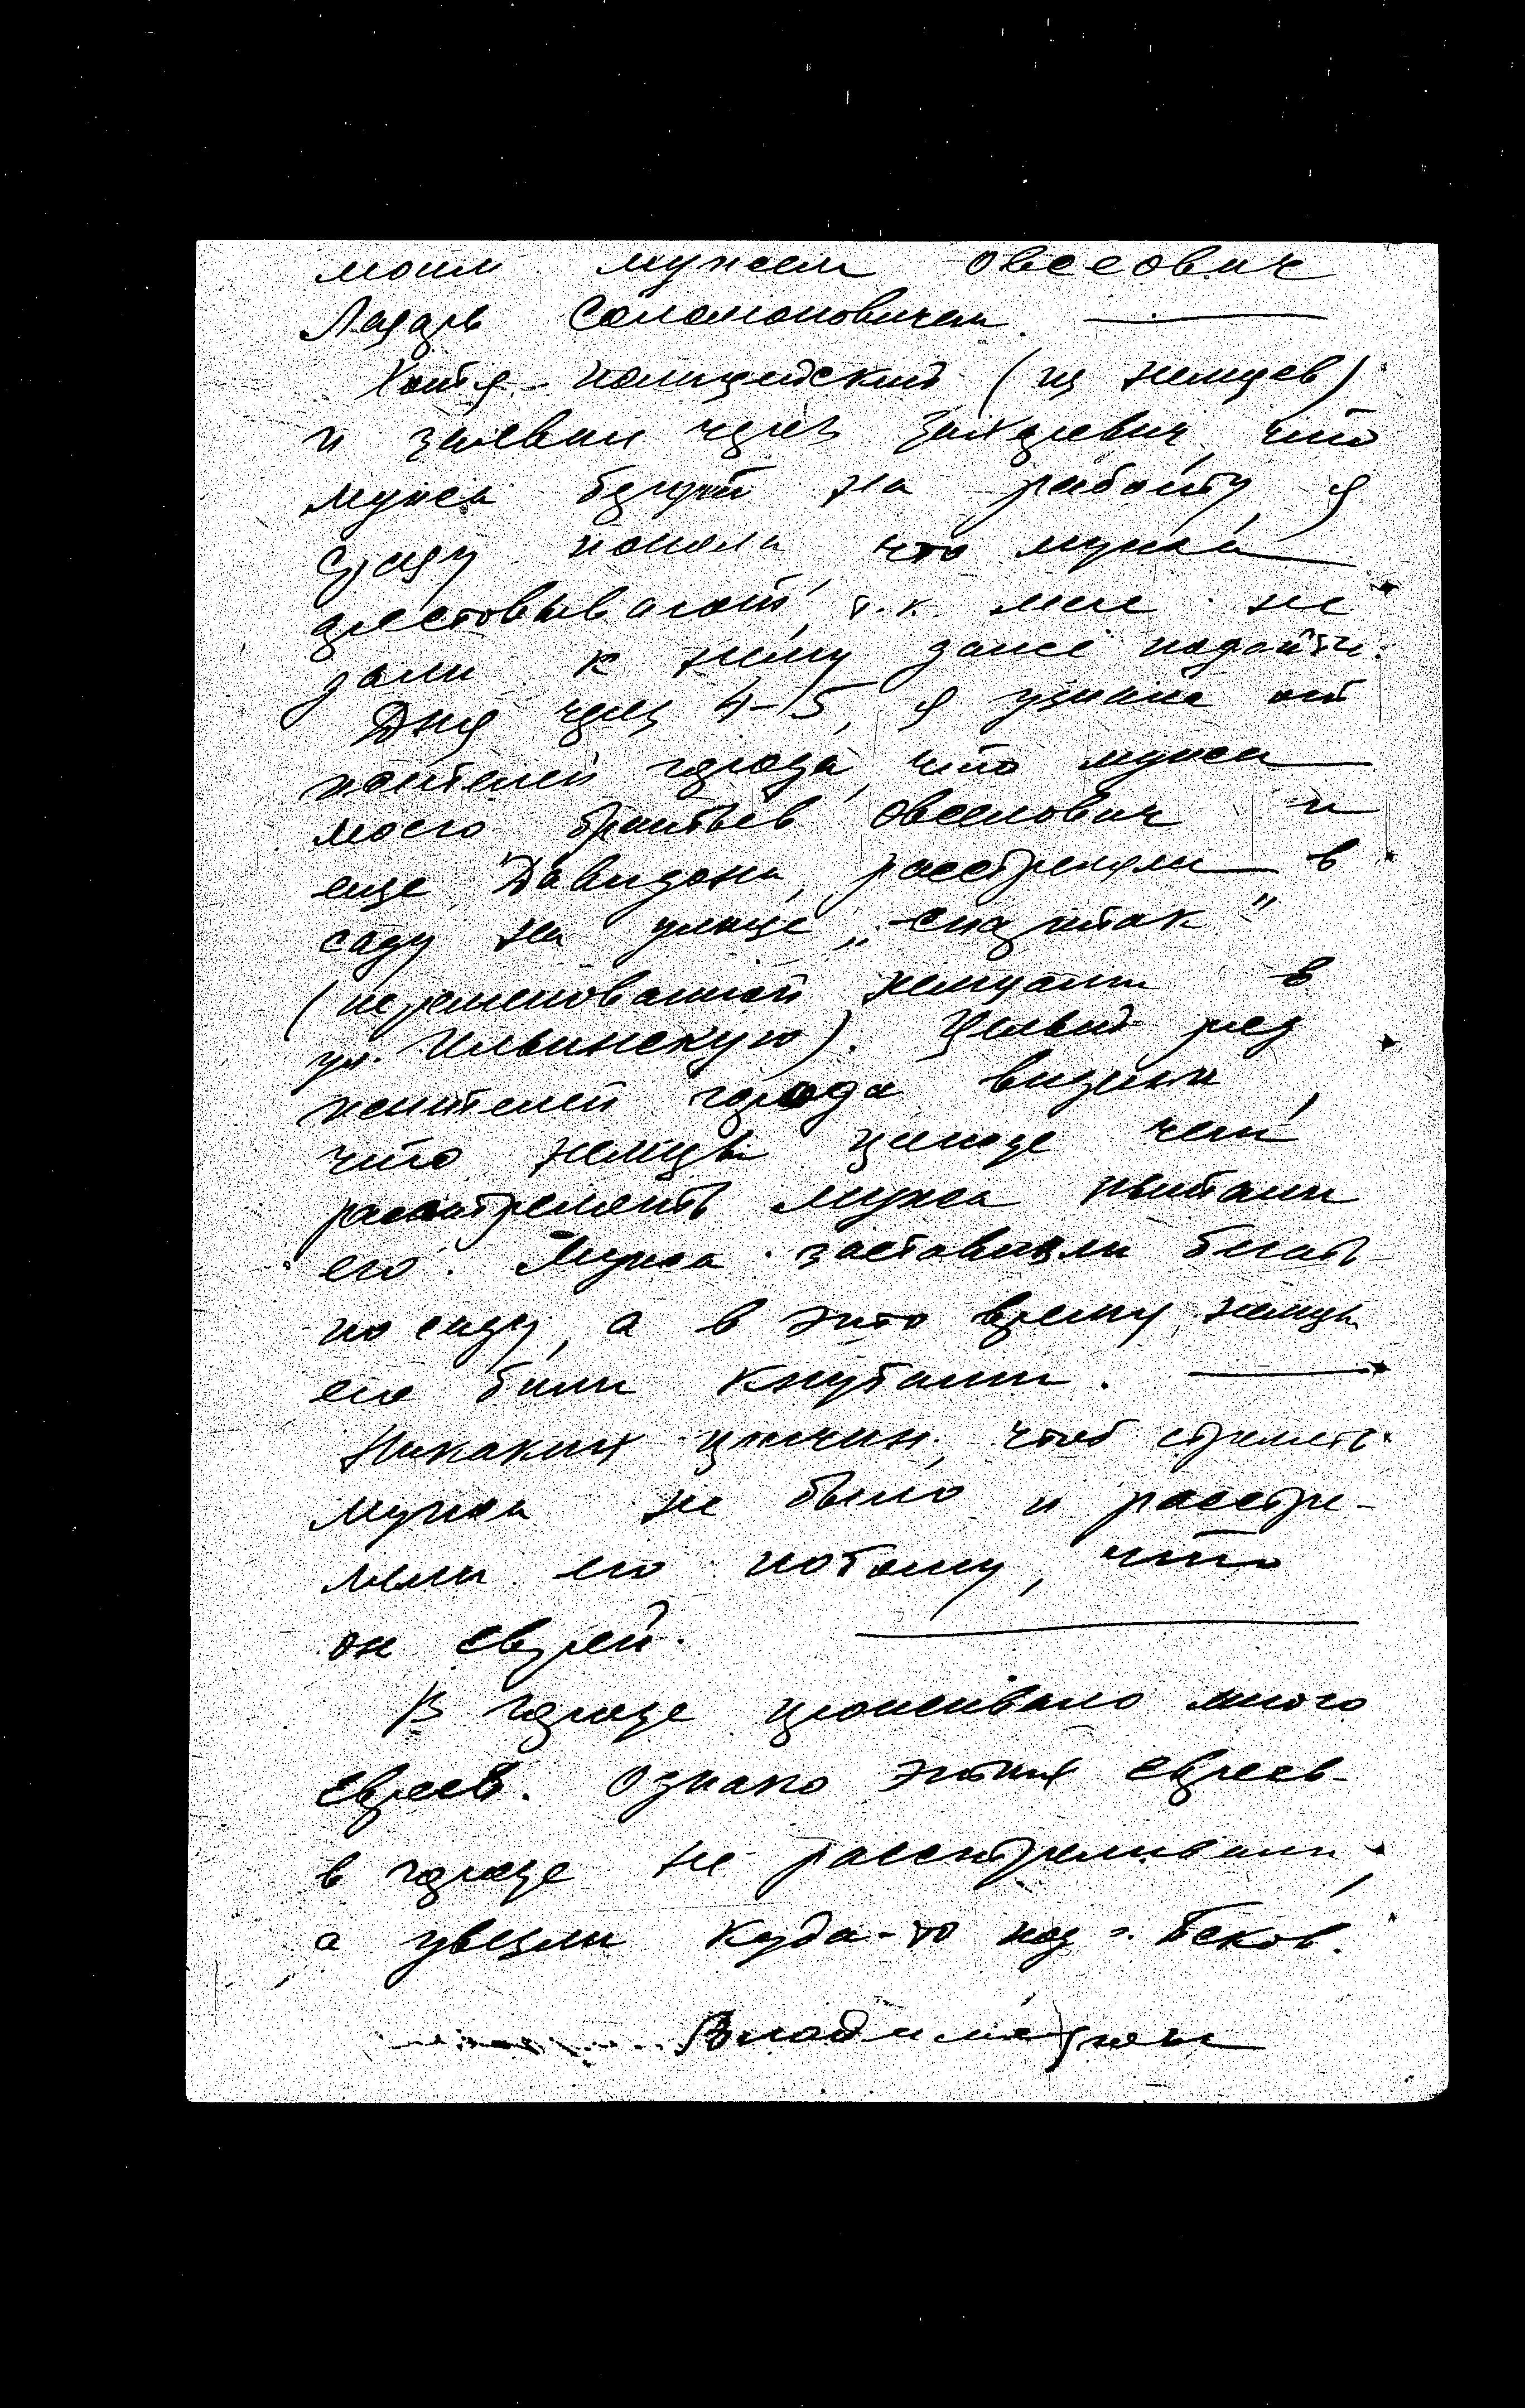 моим мужем Овсеович
Лазарь Соломоновичем.
Хотя полицейский (из немцев)
и заявил через Закревич, что
мужа берут на работу, я
сразу поняла, что мужа
арестовывают, т.к. мне не
дали к нему даже подойти.
Дня через 4-5, я узнала от
жителей города, что мужа
моего братьев Овсеович и
еще Давидона, расстреляли в
саду на улице „Спартак"
(переименованной немцами в
ул. Ильинскую). Целый ряд
жителей города видели,
что немцы прежде чем
расстрелять мужа пытали
его. Мужа заставляли бегать
по саду, а в это время немцы
его били кнутами.
Никаких причин, чтоб стрелять
мужа не было и расстре-
ляли его потому, что
он еврей.
В городе проживало много
евреев. Однако этих евреев
в городе не расстреливали,
а увезли куда-то под г. Псков.